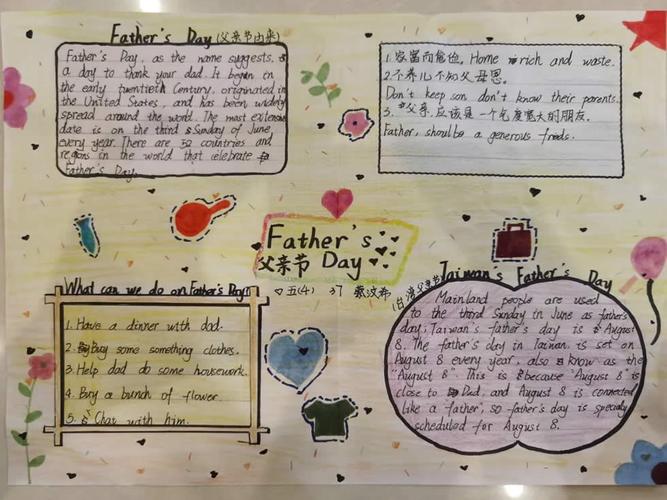 Father's Day (父亲节由来)
Father's Day, as the name suggests, is
a day to thank your dad. It began in
the early twentieth Century, originated in
the United States, and has been widely
spread around the world. The most extensive
date is on the third Sunday of June,
every year. There are 52 countries and
regions in the world that celebrate
Father's Day.
1. 家富而愈俭, Home rich and waste.
2. 不养儿不知父母恩。
Don't keep son don't know their parents.
3. 父亲, 应该是一个气度宽大的朋友。
Father, shoulbe a generous frieds.
Father's
父亲节 Day
五(4) 37 蔡汶希
What can we do on Father's Day?
1. Have a dinner with dad.
2. Buy some something clothes.
3. Help dad do some housework.
4. Buy a bunch of flower.
5. Chat with him.
Taiwan's Father's Day
(台湾父亲节)
Mainland people are used
to the third Sunday in June as father's
day, Taiwan's father's day is August
8. The father's day in Taiwan is set on
August 8 every year, also know as the
"August 8". This is because "August 8" is
close to Dad, and August 8 is connected
like a father, so father's day is specially
scheduled for August 8.